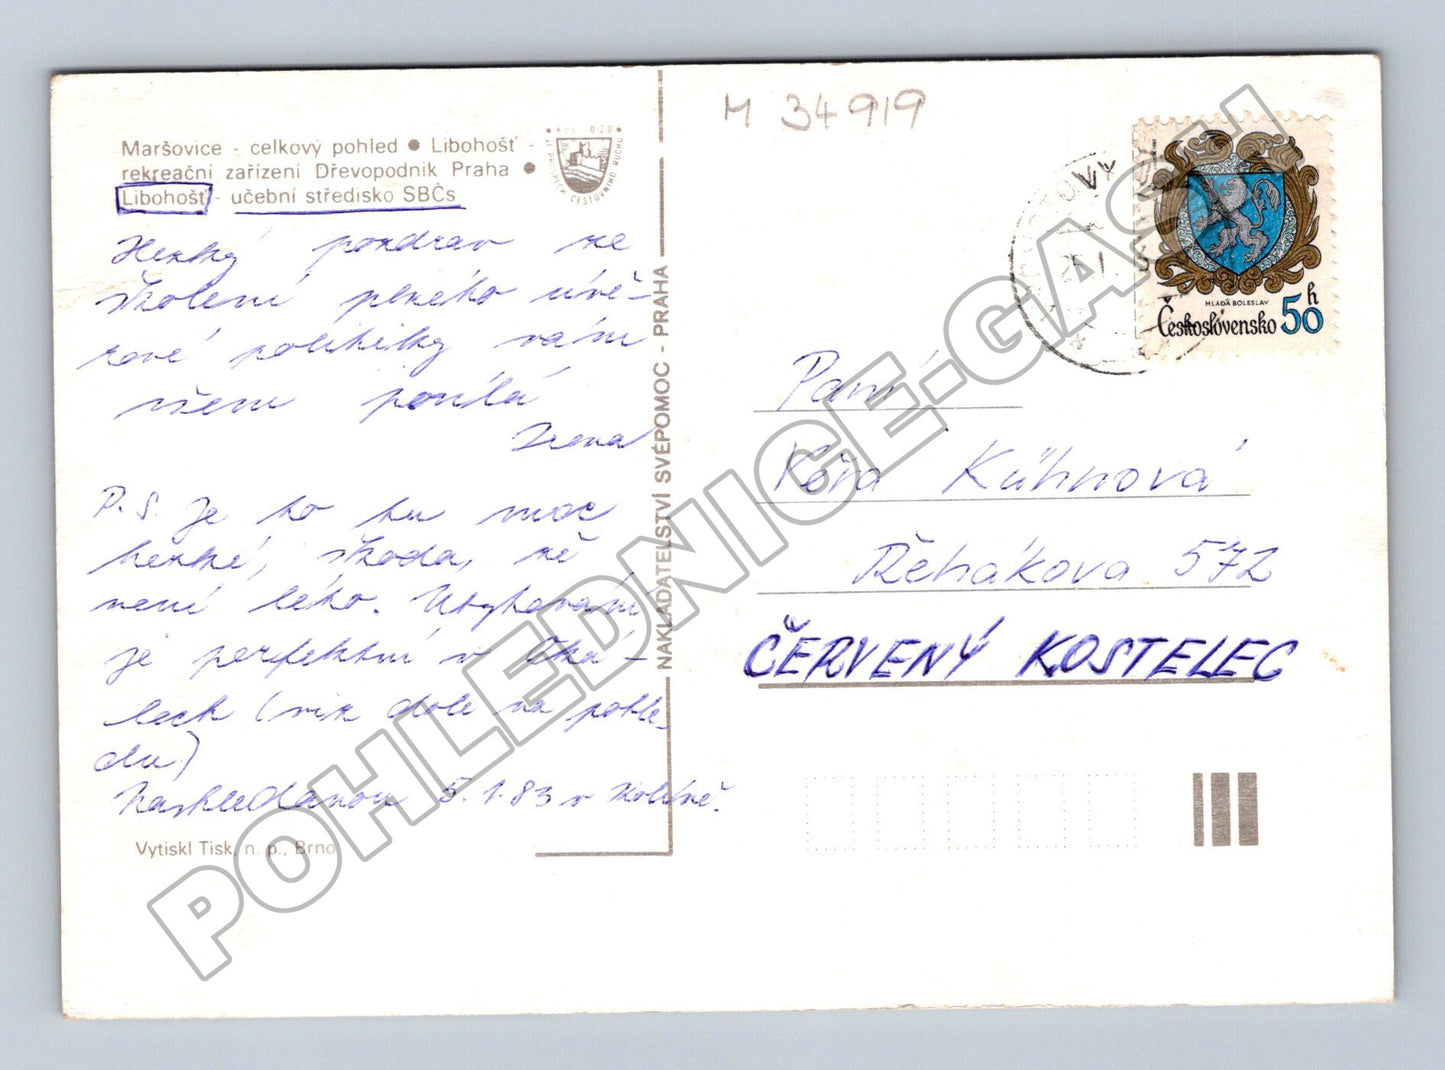 M 34919
Maršovice - celkový pohled ● Libohošť -
rekreační zařízení Dřevopodnik Praha ●
Libohošť - učební středisko SBČs
Hezký pozdrav ze
školení plného úvě-
rové politiky vám
všem posílá
Irena
P.S. Je to tu moc
hezké, škoda, že
není léto. Ubytování
je perfektní v
(viz dole na pohle-
du)
Nashledanou 5.1.83 v
Vytiskl Tisk, n. p., Brno
NAKLADATELSTVÍ SVÉPOMOC - PRAHA
MLADÁ BOLESLAV
Československo 50 h
Paní
Věra Kühnová
Řehákova 572
ČERVENÝ KOSTELEC
POHLEDNICE-GASH